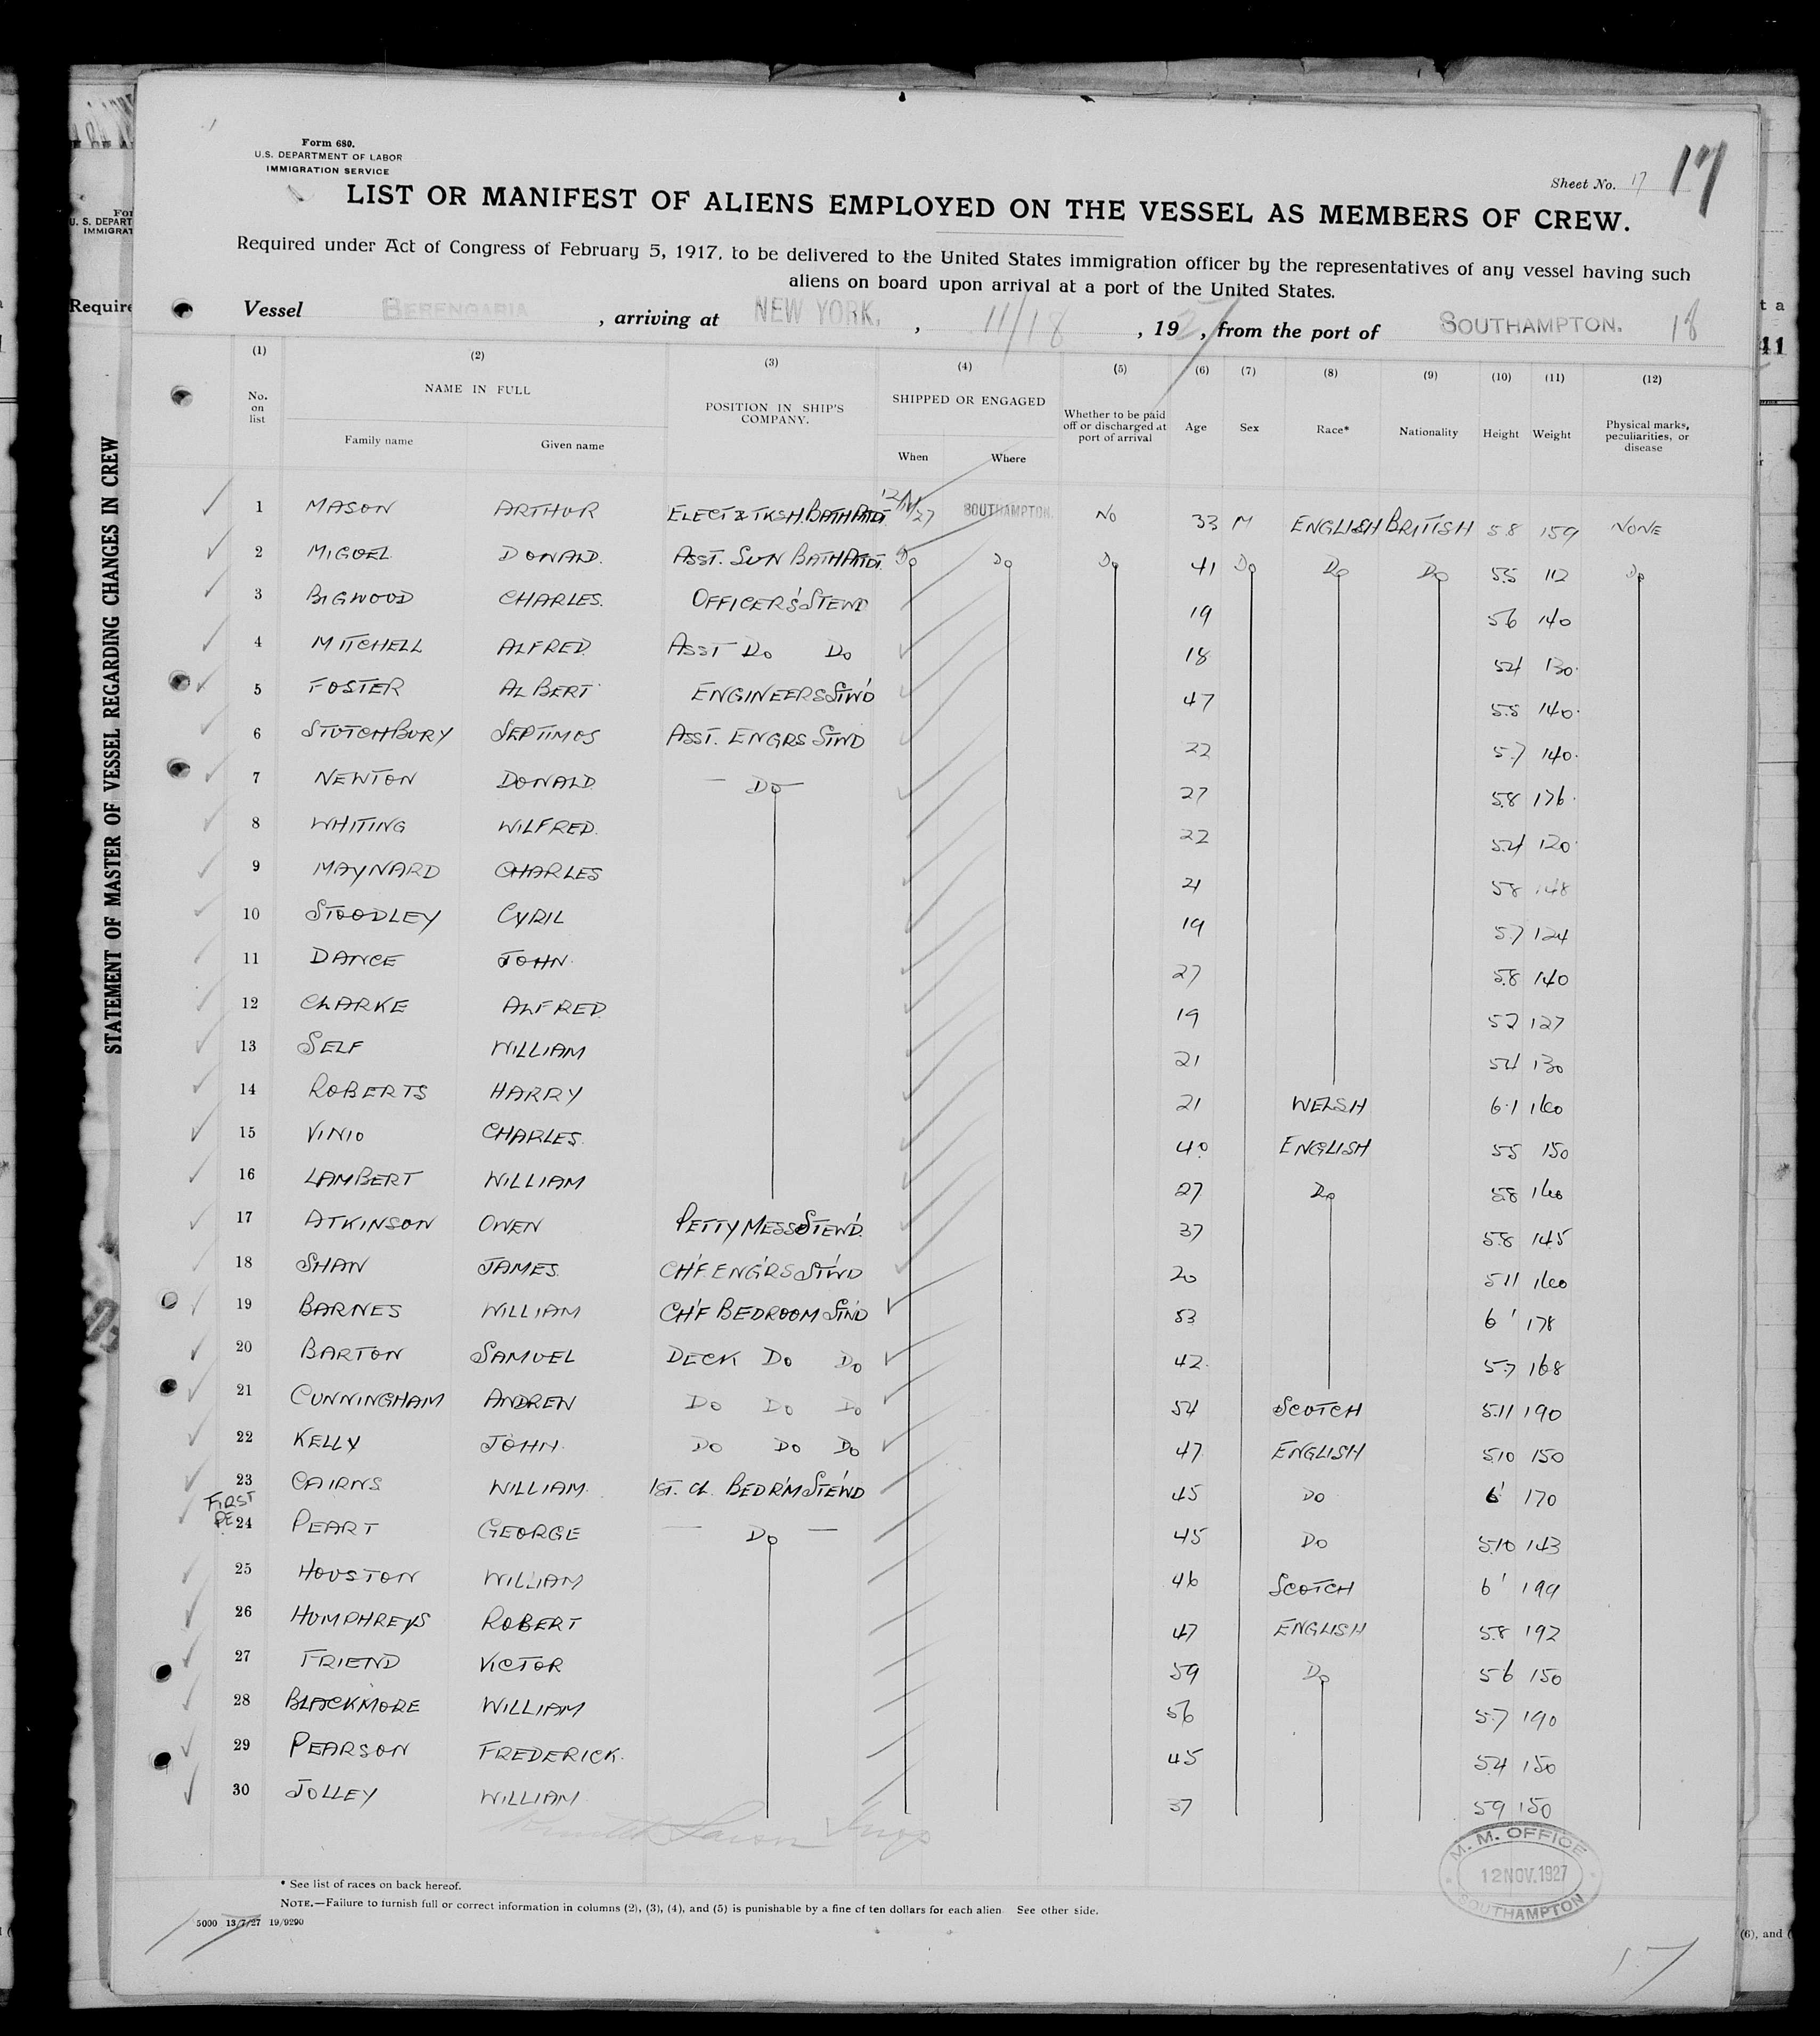 Form 680.
U.S. DEPARTMENT OF LABOR
IMMIGRATION SERVICE
Sheet No. 17
17
LIST OR MANIFEST OF ALIENS EMPLOYED ON THE VESSEL AS MEMBERS OF CREW.
Required under Act of Congress of February 5, 1917, to be delivered to the United States immigration officer by the representatives of any vessel having such
aliens on board upon arrival at a port of the United States.
Vessel BERENGARIA, arriving at NEW YORK., 11/18, 1927, from the port of SOUTHAMPTON. 18
(1) (2) (3) (4) (5) (6) (7) (8) (9) (10) (11) (12)
No. on list NAME IN FULL POSITION IN SHIP'S COMPANY. SHIPPED OR ENGAGED Whether to be paid off or discharged at port of arrival Age Sex Race* Nationality Height Weight Physical marks, peculiarities, or disease
Family name Given name When Where
1 MASON ARTHUR ELECT & TKSH. BATH ATTDT 12/11/27 SOUTHAMPTON. NO 33 M ENGLISH BRITISH 5.8 159 NONE
2 MIGUEL DONALD. ASST. SUN BATH ATTDT. Do Do Do 41 Do Do Do 5.5 112 Do
3 BIGWOOD CHARLES. OFFICERS' STEWD 19 5.6 140
4 MITCHELL ALFRED. ASST Do Do 18 5.4 130.
5 FOSTER ALBERT ENGINEERS STWD 47 5.5 140.
6 STUTCHBURY SEPTIMUS ASST. ENGRS STWD 22 5.7 140.
7 NEWTON DONALD. — Do — 27 5.8 176.
8 WHITING WILFRED. 22 5.4 120.
9 MAYNARD CHARLES 21 5.8 148
10 STOODLEY CYRIL 19 5.7 124
11 DANCE JOHN. 27 5.8 140
12 CLARKE ALFRED. 19 5.2 127
13 SELF WILLIAM 21 5.4 130
14 ROBERTS HARRY 21 WELSH 6.1 160
15 VINIO CHARLES. 40 ENGLISH 5.5 150
16 LAMBERT WILLIAM 27 Do 5.8 160
17 ATKINSON OWEN PETTY MESS STEW'D. 37 5.8 145
18 SHAW JAMES. CH'F. ENG'RS ST'WD 20 5.11 160
19 BARNES WILLIAM CH'F BEDROOM ST'WD 53 6' 178
20 BARTON SAMUEL DECK Do Do 42. 5.7 168
21 CUNNINGHAM ANDREW Do Do Do 54 SCOTCH 5.11 190
22 KELLY JOHN. Do Do Do 47 ENGLISH 5.10 150
23 CAIRNS WILLIAM. 1ST. CL. BEDR'M STEWD 45 DO 6' 170
FIRST
24 PEART GEORGE — Do — 45 DO 5.10 143
25 HOUSTON WILLIAM 46 SCOTCH 6' 199
26 HUMPHREYS ROBERT 47 ENGLISH 5.8 192
27 FRIEND VICTOR 59 Do 5.6 150
28 BLACKMORE WILLIAM 56 5.7 190
29 PEARSON FREDERICK. 45 5.4 150
30 JOLLEY WILLIAM 37 5.9 150
M. M. OFFICE
12 NOV. 1927
SOUTHAMPTON
* See list of races on back hereof.
NOTE.—Failure to furnish full or correct information in columns (2), (3), (4), and (5) is punishable by a fine of ten dollars for each alien. See other side.
5000 13/7/27 19/9290
17
STATEMENT OF MASTER OF VESSEL REGARDING CHANGES IN CREW
U. S. DEPART
IMMIGRAT
Require
41
(6), and (